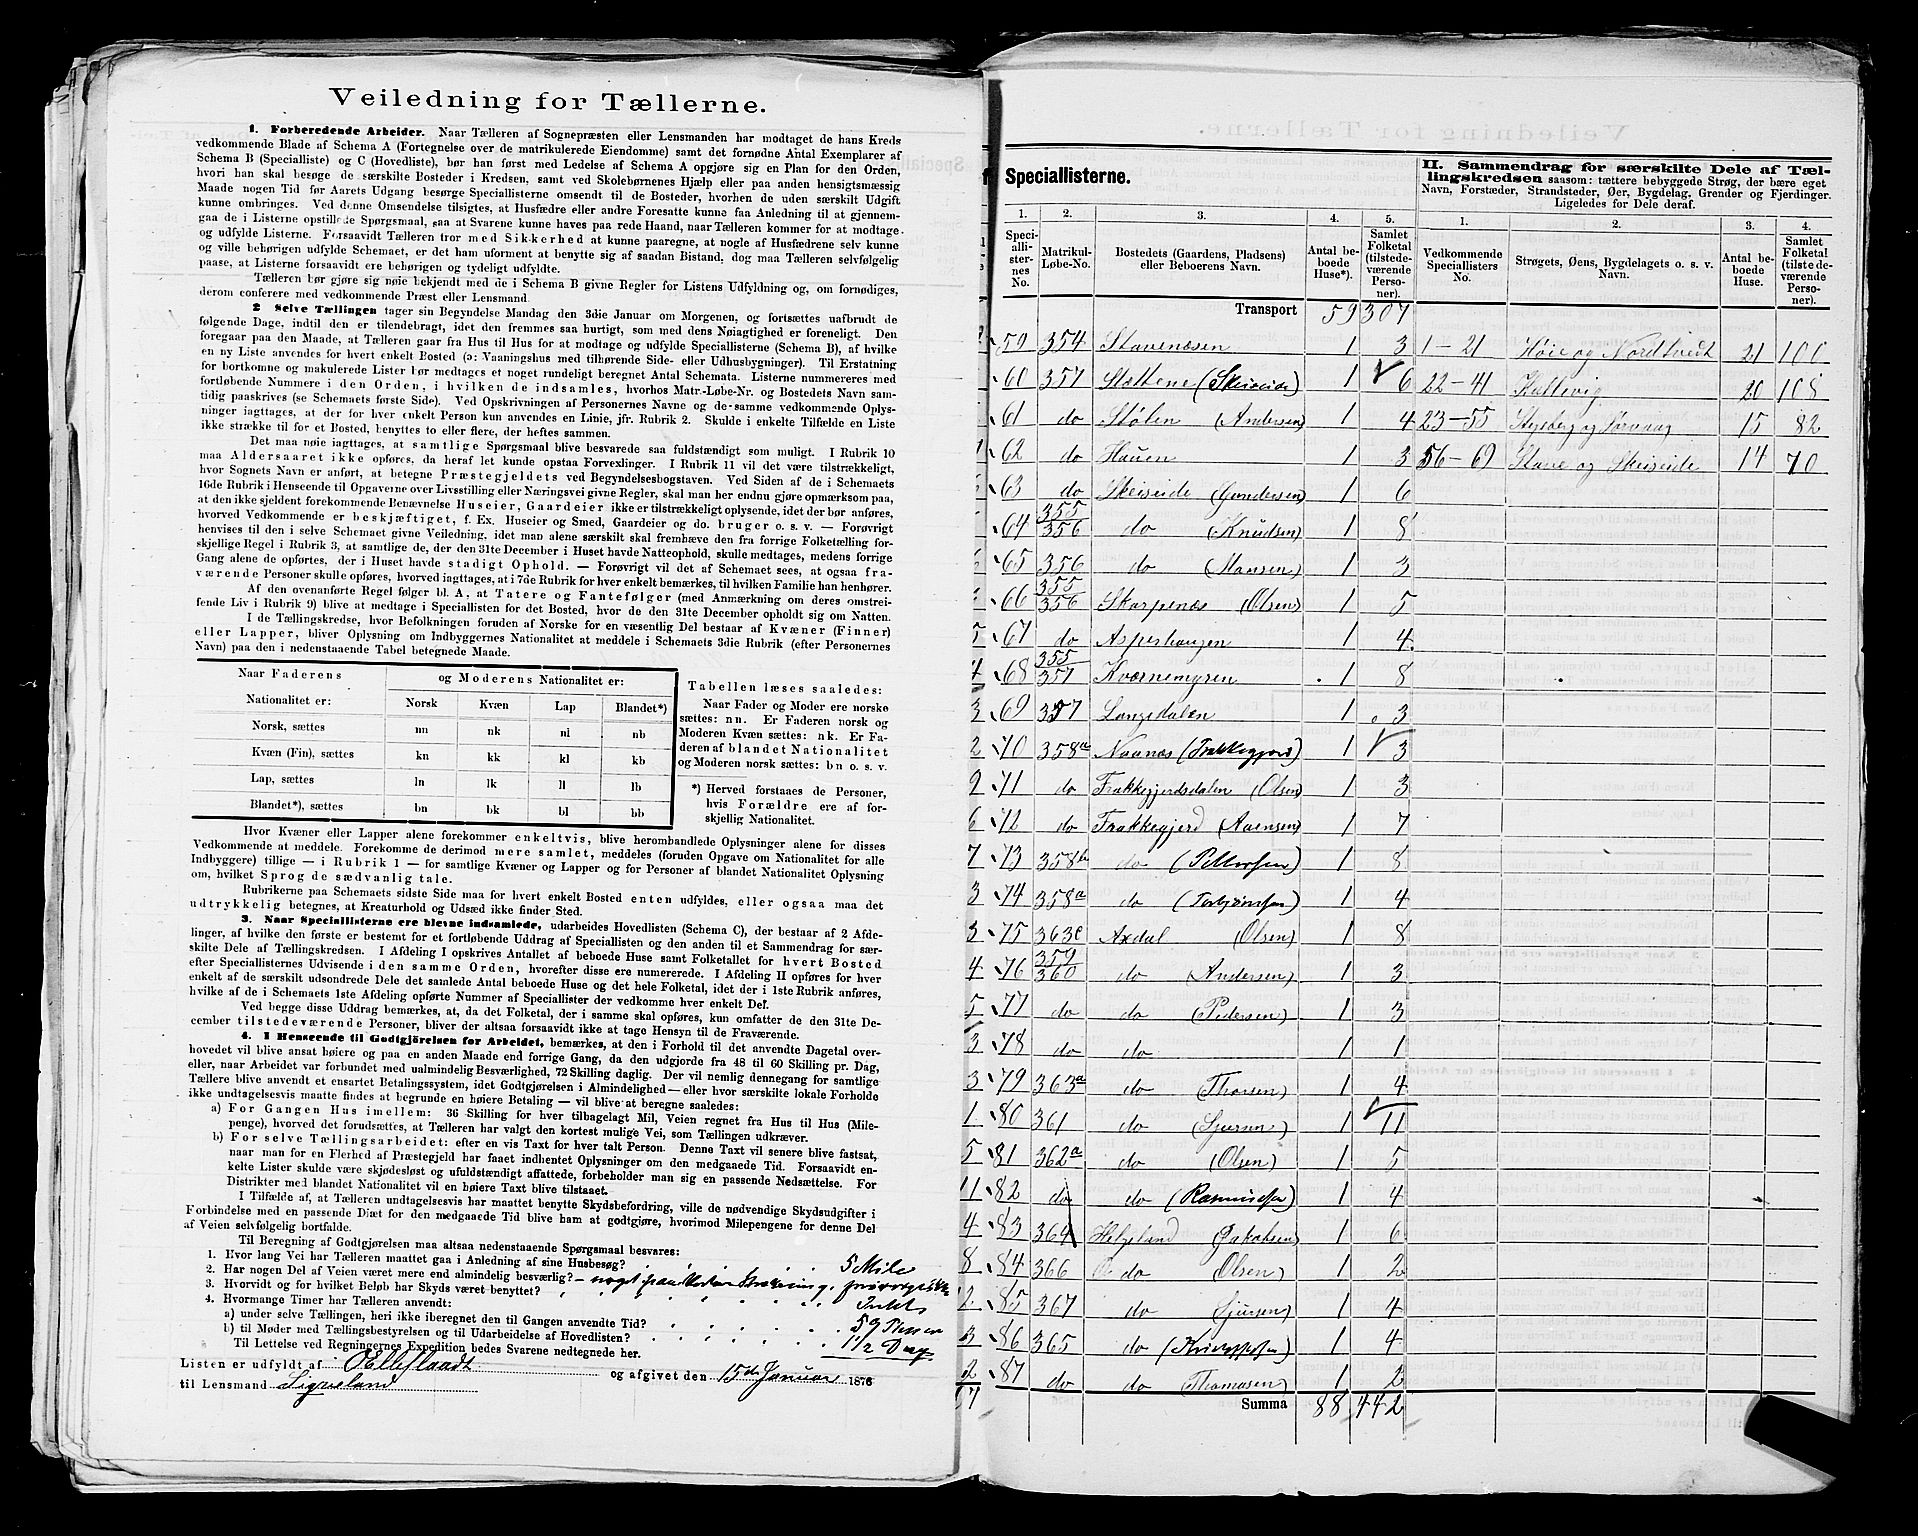 Veiledning for Tællerne.
1. Forberedende Arbeider. Naar Tælleren af Sognepræsten eller Lensmanden har modtaget de hans Kreds
vedkommende Blade af Schema A (Fortegnelse over de matrikulerede Eiendomme) samt det fornødne Antal Exemplarer af
Schema B (Specialliste) og C (Hovedliste), bør han først med Ledelse af Schema A opgjøre sig en Plan for den Orden,
hvori han skal besøge de særskilte Bosteder i Kredsen, samt ved Skolebørnenes Hjælp eller paa anden hensigtsmæssig
Maade nogen Tid før Aarets Udgang besørge Speciallisterne omsendt til de Bosteder, hvorhen de uden særskilt Udgift
kunne ombringes. Ved denne Omsendelse tilsigtes, at Husfædre eller andre Foresatte kunne faa Anledning til at gjennem-
gaa de i Listerne opstillede Spørgsmaal, saa at Svarene kunne haves paa rede Haand, naar Tælleren kommer for at modtage
og udfylde Listerne. Forsaavidt Tælleren tror med Sikkerhed at kunne paaregne, at nogle af Husfædrene selv kunne
og ville behørigen udfylde Schemaet, er det ham uforment at benytte sig af saadan Bistand, dog maa Tælleren selvfølgelig
paase, at Listerne forsaavidt ere behørigen og tydeligt udfyldte.
Tælleren bør gjøre sig nøie bekjendt med de i Schema B givne Regler for Listens Udfyldning og, om fornødiges,
derom conferere med vedkommende Præst eller Lensmand.
2 Selve Tællingen tager sin Begyndelse Mandag den 3die Januar om Morgenen, og fortsættes uafbrudt de
følgende Dage, indtil den er tilendebragt, idet den fremmes saa hurtigt, som med dens Nøiagtighed er foreneligt. Den
foregaar paa den Maade, at Tælleren gaar fra Hus til Hus for at modtage og udfylde Speciallisterne (Schema B), af hvilke
en ny Liste anvendes for hvert enkelt Bosted (ɔ: Vaaningshus med tilhørende Side- eller Udhusbygninger). Til Erstatning
for bortkomne og makulerede Lister bør medtages et noget rundeligt beregnet Antal Schemata. Listerne nummereres med
fortløbende Nummere i den Orden, i hvilken de indsamles, hvorhos Matr.-Løbe-Nr. og Bostedets Navn sam-
tidig paaskrives (se Schemaets første Side). Ved Opskrivningen af Personernes Navne og de samme vedkommende Oplys-
ninger iagttages, at der for hver enkelt Person kun anvendes en Linie, jfr. Rubrik 2. Skulde i enkelte Tilfælde en Liste
ikke strække til for et Bosted, benyttes to eller flere, der heftes sammen.
Det maa nøie iagttages, at samtlige Spørgsmaal blive besvarede saa fuldstændigt som muligt. I Rubrik 10
maa Aldersaaret ikke opføres, da heraf let kunde opstaa Forvexlinger. I Rubrik 11 vil det være tilstrækkeligt,
hvor Sognets Navn er anført, at betegne Præstegjeldets ved Begyndelsesbogstaven. Ved Siden af de i Schemaets
16de Rubrik i Henseende til Opgaverne over Livsstilling eller Næringsvei givne Regler, skal man her endnu gjøre opmærksom paa,
at den ikke sjeldent forekommende Benævnelse Huseier, Gaardeier ikke er tilstrækkeligt oplysende, idet der bør anføres,
hvorved Vedkommende er beskjæftiget, f. Ex. Huseier og Smed, Gaardeier og do. bruger o. s. v. — Forøvrigt
henvises til den i selve Schemaet givne Veiledning, idet man alene særskilt skal fremhæve den fra forrige Folketælling for-
skjellige Regel i Rubrik 3, at samtlige de, der den 31te December i Huset havde Natteophold, skulle medtages, medens forrige
Gang alene de opførtes, der i Huset havde stadigt Ophold. — Forøvrigt vil det af Schemaet sees, at ogsaa fra-
værende Personer skulle opføres, hvorved iagttages, at i 7de Rubrik for hver enkelt bemærkes, til hvilken Familie han henhører.
Af den ovenanførte Regel følger bl. A, at Tatere og Fantefølger (med Anmærkning om deres omstrei-
fende Liv i Rubrik 9) blive at medtage i Speciallisten for det Bosted, hvor de den 31te December opholdt sig om Natten.
I de Tællingskredse, hvor Befolkningen foruden af Norske for en væsentlig Del bestaar af Kvæner (Finner)
eller Lapper, bliver Oplysning om Indbyggernes Nationalitet at meddele i Schemaets 3die Rubrik (efter Personernes
Navn) paa den i nedenstaaende Tabel betegnede Maade.
Naar Faderens Nationalitet er: og Moderens Nationalitet er:
Norsk Kvæn Lap Blandet*)
Norsk, sættes nn nk nl nb
Kvæn (Fin), sættes kn kk kl kb
Lap, sættes ln lk ll lb
Blandet*), sættes bn bk bl bb
Tabellen læses saaledes:
Naar Fader og Moder ere norske
sættes: nn. Er Faderen norsk og
Moderen Kvæn sættes: nk. Er Fa-
deren af blandet Nationalitet
og Moderen norsk sættes: bn o. s. v.
*) Herved forstaaes de Personer,
hvis Forældre ere af for-
skjellig Nationalitet.
Hvor Kvæner eller Lapper alene forekommer enkeltvis, blive herombandlede Oplysninger alene for disses
Vedkommende at meddele. Forekomme de derimod mere samlet, meddeles (foruden Opgave om Nationalitet for alle
Indbyggere) tillige — i Rubrik 1 — for samtlige Kvæner og Lapper og for Personer af blandet Nationalitet Oplysning
om, hvilket Sprog de sædvanlig tale.
Rubrikerne paa Schemaets sidste Side maa for hvert enkelt Bosted enten udfyldes, eller ogsaa maa det
udtrykkelig betegnes, at Kreaturhold og Udsæd ikke finder Sted.
3. Naar Speciallisterne ere blevne indsamlede, udarbeides Hovedlisten (Schema C), der bestaar af 2 Afde-
linger, af hvilke den første er bestemt for et fortløbende Uddrag af Speciallisten og den anden til et Sammendrag for sær-
skilte Dele af Tællingskredsen. I Afdeling I opskrives Antallet af beboede Huse samt Folketallet for hvert Bosted
efter Speciallisternes Udvisende i den samme Orden, hvorefter disse ere numererede. I Afdeling II opføres for hver
enkelt af de særskilt udsondrede Dele det samlede Antal beboede Huse og det hele Folketal, idet der i 1ste Rubrik anføres,
hvilke af de i Schemaets 1ste Afdeling opførte Nummer af Speciallister der vedkomme hver enkelt Del.
Ved begge disse Uddrag bemærkes, at, da det Folketal, der i samme skal opføres, kun omfatter de den 31te De-
cember tilstedeværende Personer, bliver der altsaa forsaavidt ikke at tage Hensyn til de Fraværende.
4. I Henseende til Godtgjörelsen for Arbeidet, bemærkes, at den i Forhold til det anvendte Dagetal over-
hovedet vil blive ansat høiere og paa en anden Maade end forrige Gang, da den udgjorde fra 48 til 60 Skilling pr. Dag,
eller, naar Arbeidet var forbundet med ualmindelig Besværlighed, 72 Skilling daglig. Der vil nemlig dennegang for samtlige
Tællere blive anvendt et ensartet Betalingssystem, idet Godtgjörelsen i Almindelighed — eller hvor særskilte lokale Forholde
ikke undtagelsesvis maatte findes at begrunde en høiere Betaling — vil blive at beregne saaledes:
a) For Gangen Hus imellem: 36 Skilling for hver tilbagelagt Mil, Veien regnet fra Hus til Hus (Mile-
penge), hvorved det forudsættes, at Tælleren har valgt den kortest mulige Vei, som Tællingen udkræver.
b) For selve Tællingsarbeidet: efter en vis Taxt for hver talt Person. Denne Taxt vil senere blive fastsat,
naar man for en Flerhed af Præstegjeld har faaet indhentet Oplysninger om den medgaaede Tid. Forsaavidt en-
kelte Lister skulde være skjødesløst og ufuldstændigt affattede, forbeholder man sig en passende Nedsættelse. For
Distrikter med blandet Nationalitet vil en høiere Taxt blive tilstaaet.
I Tilfælde af, at Tælleren undtagelsesvis har maattet benytte Skydsbefordring, ville de nødvendige Skydsudgifter i
Forbindelse med en passende Diæt for den medgaaede Tid blive ham at godtgjøre, hvorimod Milepengene for denne Del
af Veien selvfølgelig bortfalde.
Til Beregning af Godtgjørelsen maa altsaa nedenstaaende Spørgsmaal besvares:
1. Hvor lang Vei har Tælleren maattet gaa i Anledning af sine Husbesøg? 5 Mile
2. Har nogen Del af Veien været mere end almindelig besværlig?
3. Hvorvidt og for hvilket Beløb har Skyds været benyttet?
4. Hvormange Timer har Tælleren anvendt:
a) under selve Tællingen, heri ikke iberegnet den til Gangen anvendte Tid? 59 Timer
b) til Møder med Tællingsbestyrelsen og til Udarbeidelse af Hovedlisten? 1 1/2 Dag
Til Lettelse ved Regningernes Expedition bedes Svarene nedtegnede her.
Listen er udfyldt af og afgivet den 15de Januar 1876
til Lensmand Ligneland
Speciallisterne.
1. 2. 3. 4. 5.
Speciallisternes No. Matrikul-Løbe-No. Bostedets (Gaardens, Pladsens) eller Beboerens Navn. Antal beboede Huse*). Samlet Folketal (tilstedeværende Personer).
Transport 59 307
59 354 Stavenæsen 1 3
60 357 Slættene (Skeiseide) 1 6
61 do Stølen (Andersen) 1 4
62 do Hauen 1 3
63 do Skeiseide (Gundersen) 1 6
64 355/356 do (Knudsen) 1 8
65 356 do (Hansen) 1 3
66 355/356 Skarpenæs (Olsen) 1 5
67 do Aspeshaugen 1 4
68 355/357 Kværnemyren 1 8
69 357 Langedalen 1 3
70 358a Naanæs (Frakkegjerd) 1 3
71 do Frakkegjerdsdalen (Olsen) 1 3
72 do Frakkegjerd (Aaensen) 1 7
73 358b do (Pettersen) 1 8
74 358a do (Torbjörnsen) 1 4
75 363c Axdal (Olsen) 1 8
76 359/360 do (Andersen) 1 3
77 do do (Pedersen) 1 3
78 do do 1 1
79 363a do (Thorsen) 1 4
80 361 do (Sjursen) 1 11
81 362a do (Olsen) 1 5
82 do do (Rasmussen) 1 4
83 364 Helgeland (Jakobsen) 1 6
84 366 do (Olsen) 1 2
85 367 do (Sjursen) 1 4
86 365 do 1 4
87 do do (Thomasen) 1 2
Summa 88 442
II. Sammendrag for særskilte Dele af Tæl-
lingskredsen saasom: tættere bebyggede Strøg, der bære eget
Navn, Forstæder, Strandsteder, Øer, Bygdelag, Grender og Fjerdinger.
Ligeledes for Dele deraf.
1. 2. 3. 4.
Vedkommende Speciallisters No. Strøgets, Øens, Bygdelagets o. s. v. Navn. Antal beboede Huse. Samlet Folketal (tilstedeværende Personer).
1-21 Høie og Nordtvedt 21 100
22-41 Kattevig 20 108
23-55 Stysberg og Sørvaag 15 82
56-69 Stave og Skeiseide 14 70